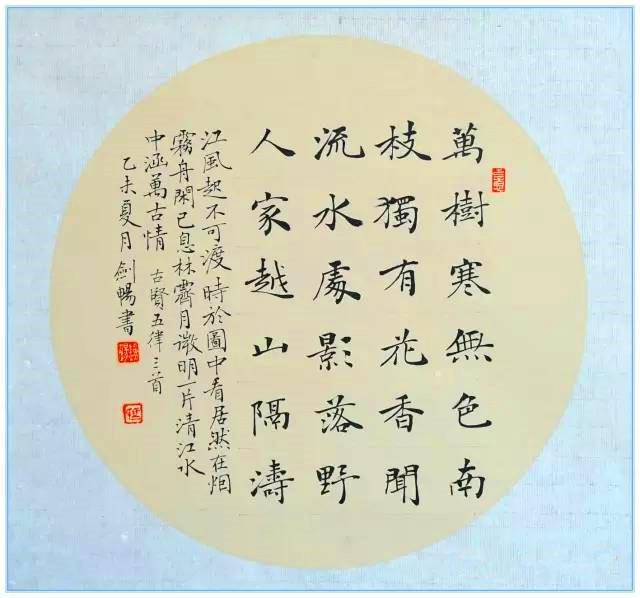 萬樹寒無色南
枝獨有花香聞
流水處影落野
人家越山隔濤
江風起不可渡時於圖中看居然在烟
霧舟閑已息林霽月微明一片清江水
中涵萬古情 古賢五律三首
乙未夏月劍暢書